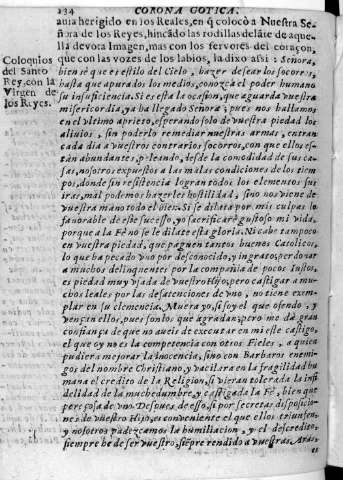 234 CORONA GOTICA.
auia herigido en los Reales, en q̃ colocò a Nuestra Se-
ñora de los Reyes, hincãdo las rodillas delãte de aque-
lla devota Imagen, mas con los fervores del coraçon,
que con las vozes de los labios, la dixo assi: Señora,
Coloquios
del Santo
Rey, con la
Virgen de
los Reyes.
bien sè que es estilo del Cielo, hazer desear los socorros,
hasta que apurados los medios, conozca el poder humano
su insuficiencia. Si es esta la ocasion, que aguarda vuestra
misericordia, ya ha llegado Señora; pues nos hallamos
en el vltimo aprieto, esperando solo de vuestra piedad los
aliuios, sin poderlo remediar nuestras armas, entran
cada dia a nuestros contrarios socorros, con que ellos es-
tàn abundantes, peleando, desde la comodidad de sus ca-
sas, nosotros expuestos a las malas condiciones de los tiem
pos, donde sin resistencia logran todos los elementos sus
iras, mal podemos hazerles hostilidad, sino nos viene de
vuestra mano todo el biẽ. Si se dilata por mis culpas lo
favorable de este sucesso, yo sacrificarè gustoso mi vida,
porque a la Fè no se le dilate esta gloria. Ni cabe tampoco
en vuestra piedad, que paguen tantos buenos Catolicos,
lo que ha pecado vno por desconocido, y ingrato, perdonar
a muchos delinquentes por la compañia de pocos Iustos,
es piedad muy vsada de vuestro Hijo; pero castigar a mu-
chos leales por las desatenciones de vno, no tiene exem-
plar en su clemencia. Muera yo, si soy el que ofendo, y
vençan ellos, pues son los que agradan; pero me dà gran
confiança de que no aueis de executar en mi este castigo,
el que oy no es la competencia con otros Fieles, a quien
pudiera mejorar la inocencia, sino con Barbaros enemi-
gos del nombre Christiano, y vacilarà en la fragilidad hu
mana el credito de la Religion, si vieran tolerada la infi
delidad de la muchedumbre, y castigada la Fè, bien que
por cosa de vno. Despues de esso, si por secretas disposicio-
nes de vuestro Hijo, es conveniente el que ellos triunfen,
y nosotros padezcamos la humiliacion, y el descredito,
siempre ha de ser vuestro, siẽpre rendido a vuestras Aras,